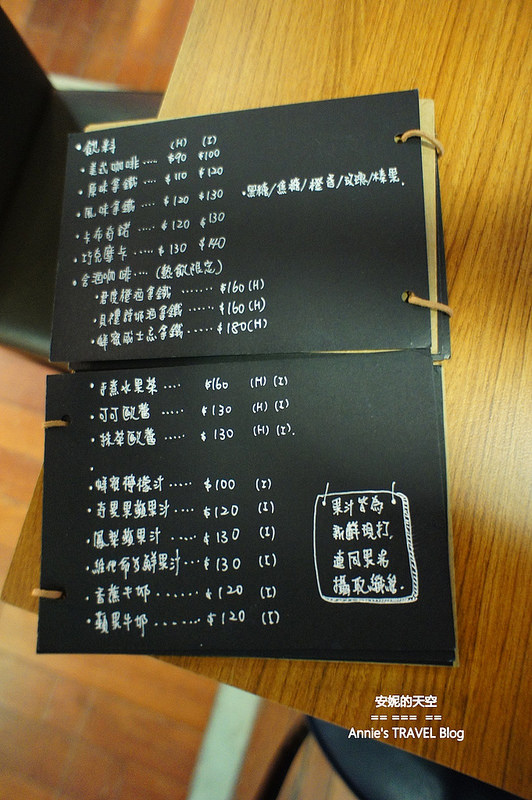 •飲料 (H) (I)
•美式咖啡.... $90 $100
•原味拿鐵.... $110 $120
•風味拿鐵.... $120 $130 •黑糖/焦糖/橙香/玫瑰/榛果.
•卡布奇諾.... $120 $130
•巧克摩卡.... $130 $140
•含酒咖啡.... (熱飲限定)
•君度橙酒拿鐵....... $160(H)
•貝禮詩奶酒拿鐵..... $160(H)
•蜂蜜威士忌拿鐵...... $180(H)
•手煮水果茶.... $160 (H) (I)
•可可歐蕾.... $130 (H) (I)
•抹茶歐蕾.... $130 (H) (I).
•蜂蜜檸檬汁..... $100 (I)
•奇異果蘋果汁.... $120 (I)
•鳳梨蘋果汁.... $130 (I)
•維他命多鮮果汁... $130 (I)
•香蕉牛奶....... $120 (I)
•蘋果牛奶....... $120 (I)
果汁皆為
新鮮現打,
連同果渣
攝取纖維.
安妮的天空
== === ==
Annie's TRAVEL Blog